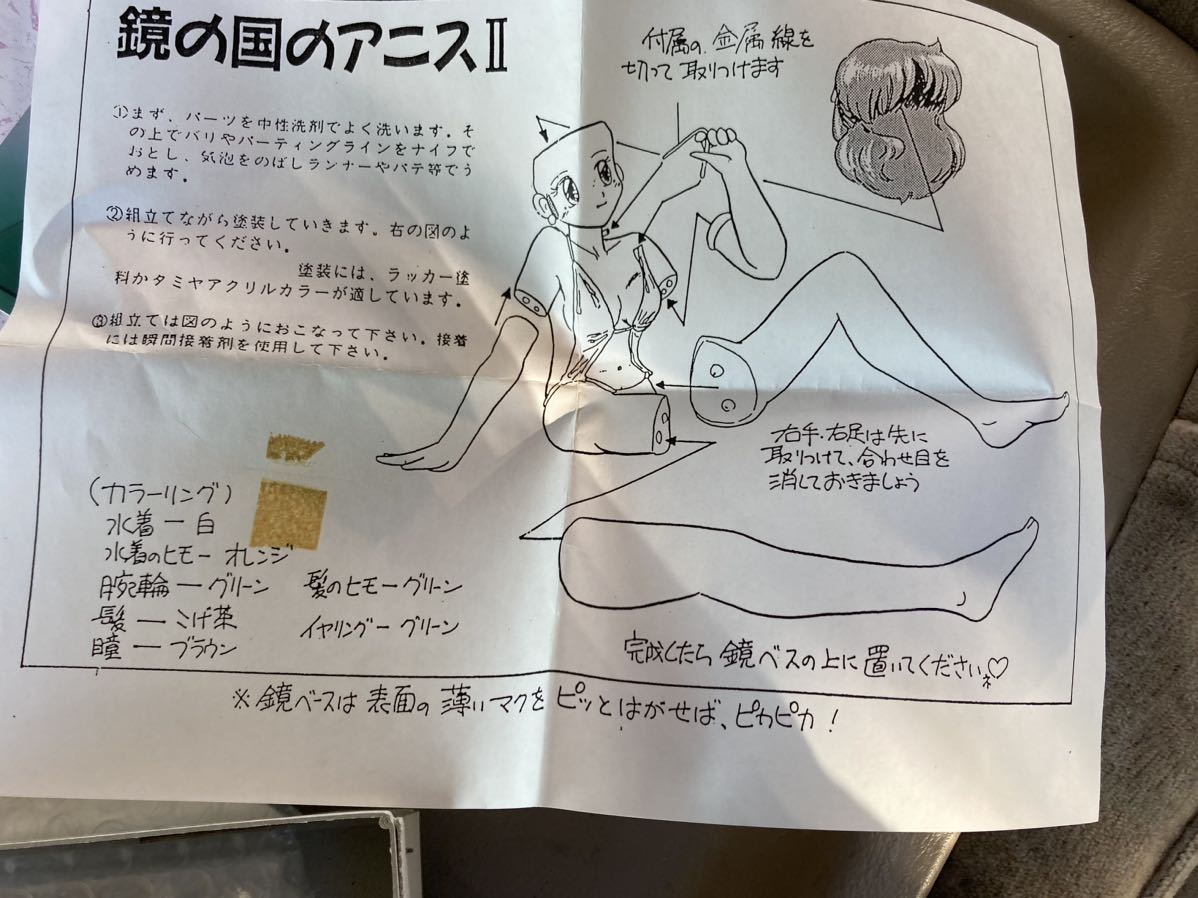 鏡の国のアニスⅡ
①まず、パーツを中性洗剤でよく洗います。そ
の上でバリやパーティングラインをナイフで
おとし、気泡をのばしランナーやパテ等でう
めます。
②組立てながら塗装していきます。右の図のよ
うに行ってください。
塗装には、ラッカー塗
料かタミヤアクリルカラーが適しています。
③組立ては図のようにおこなって下さい。接着
には瞬間接着剤を使用して下さい。
付属の、金属線を
切って取りつけます
右手・右足は先に
取りつけて、合わせ目を
消しておきましょう
(カラーリング)
水着ー白
水着のヒモー オレンジ
腕輪ーグリーン
髪ーこげ茶
瞳ーブラウン
髪のヒモーグリーン
イヤリングーグリーン
完成したら鏡ベスの上に置いてくださいネ♡
※鏡ベースは表面の薄いマクをピッとはがせば、ピカピカ!